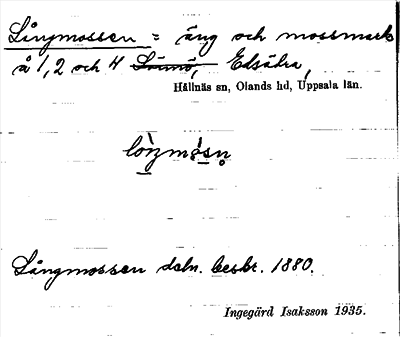 Långmossen = äng och mossmark
å 1, 2 och 4 Edsätra,
Hållnäs sn, Olands hd, Uppsala län.
Långmossen dsbr. beskr. 1880.
Ingegärd Isaksson 1935.